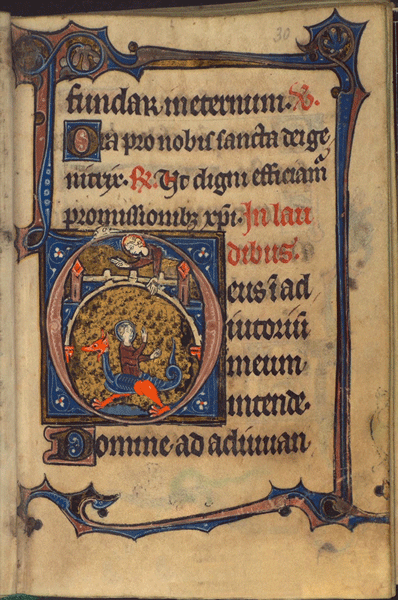 30
fundar in eternum. V.
Ora pro nobis sancta dei ge
nitrix. R. Ut digni efficiam̄
promissionib; xp̄i. In lau
dibus.
Deus ī ad
iutoriū
meum
intende.
Domine ad adiuuan